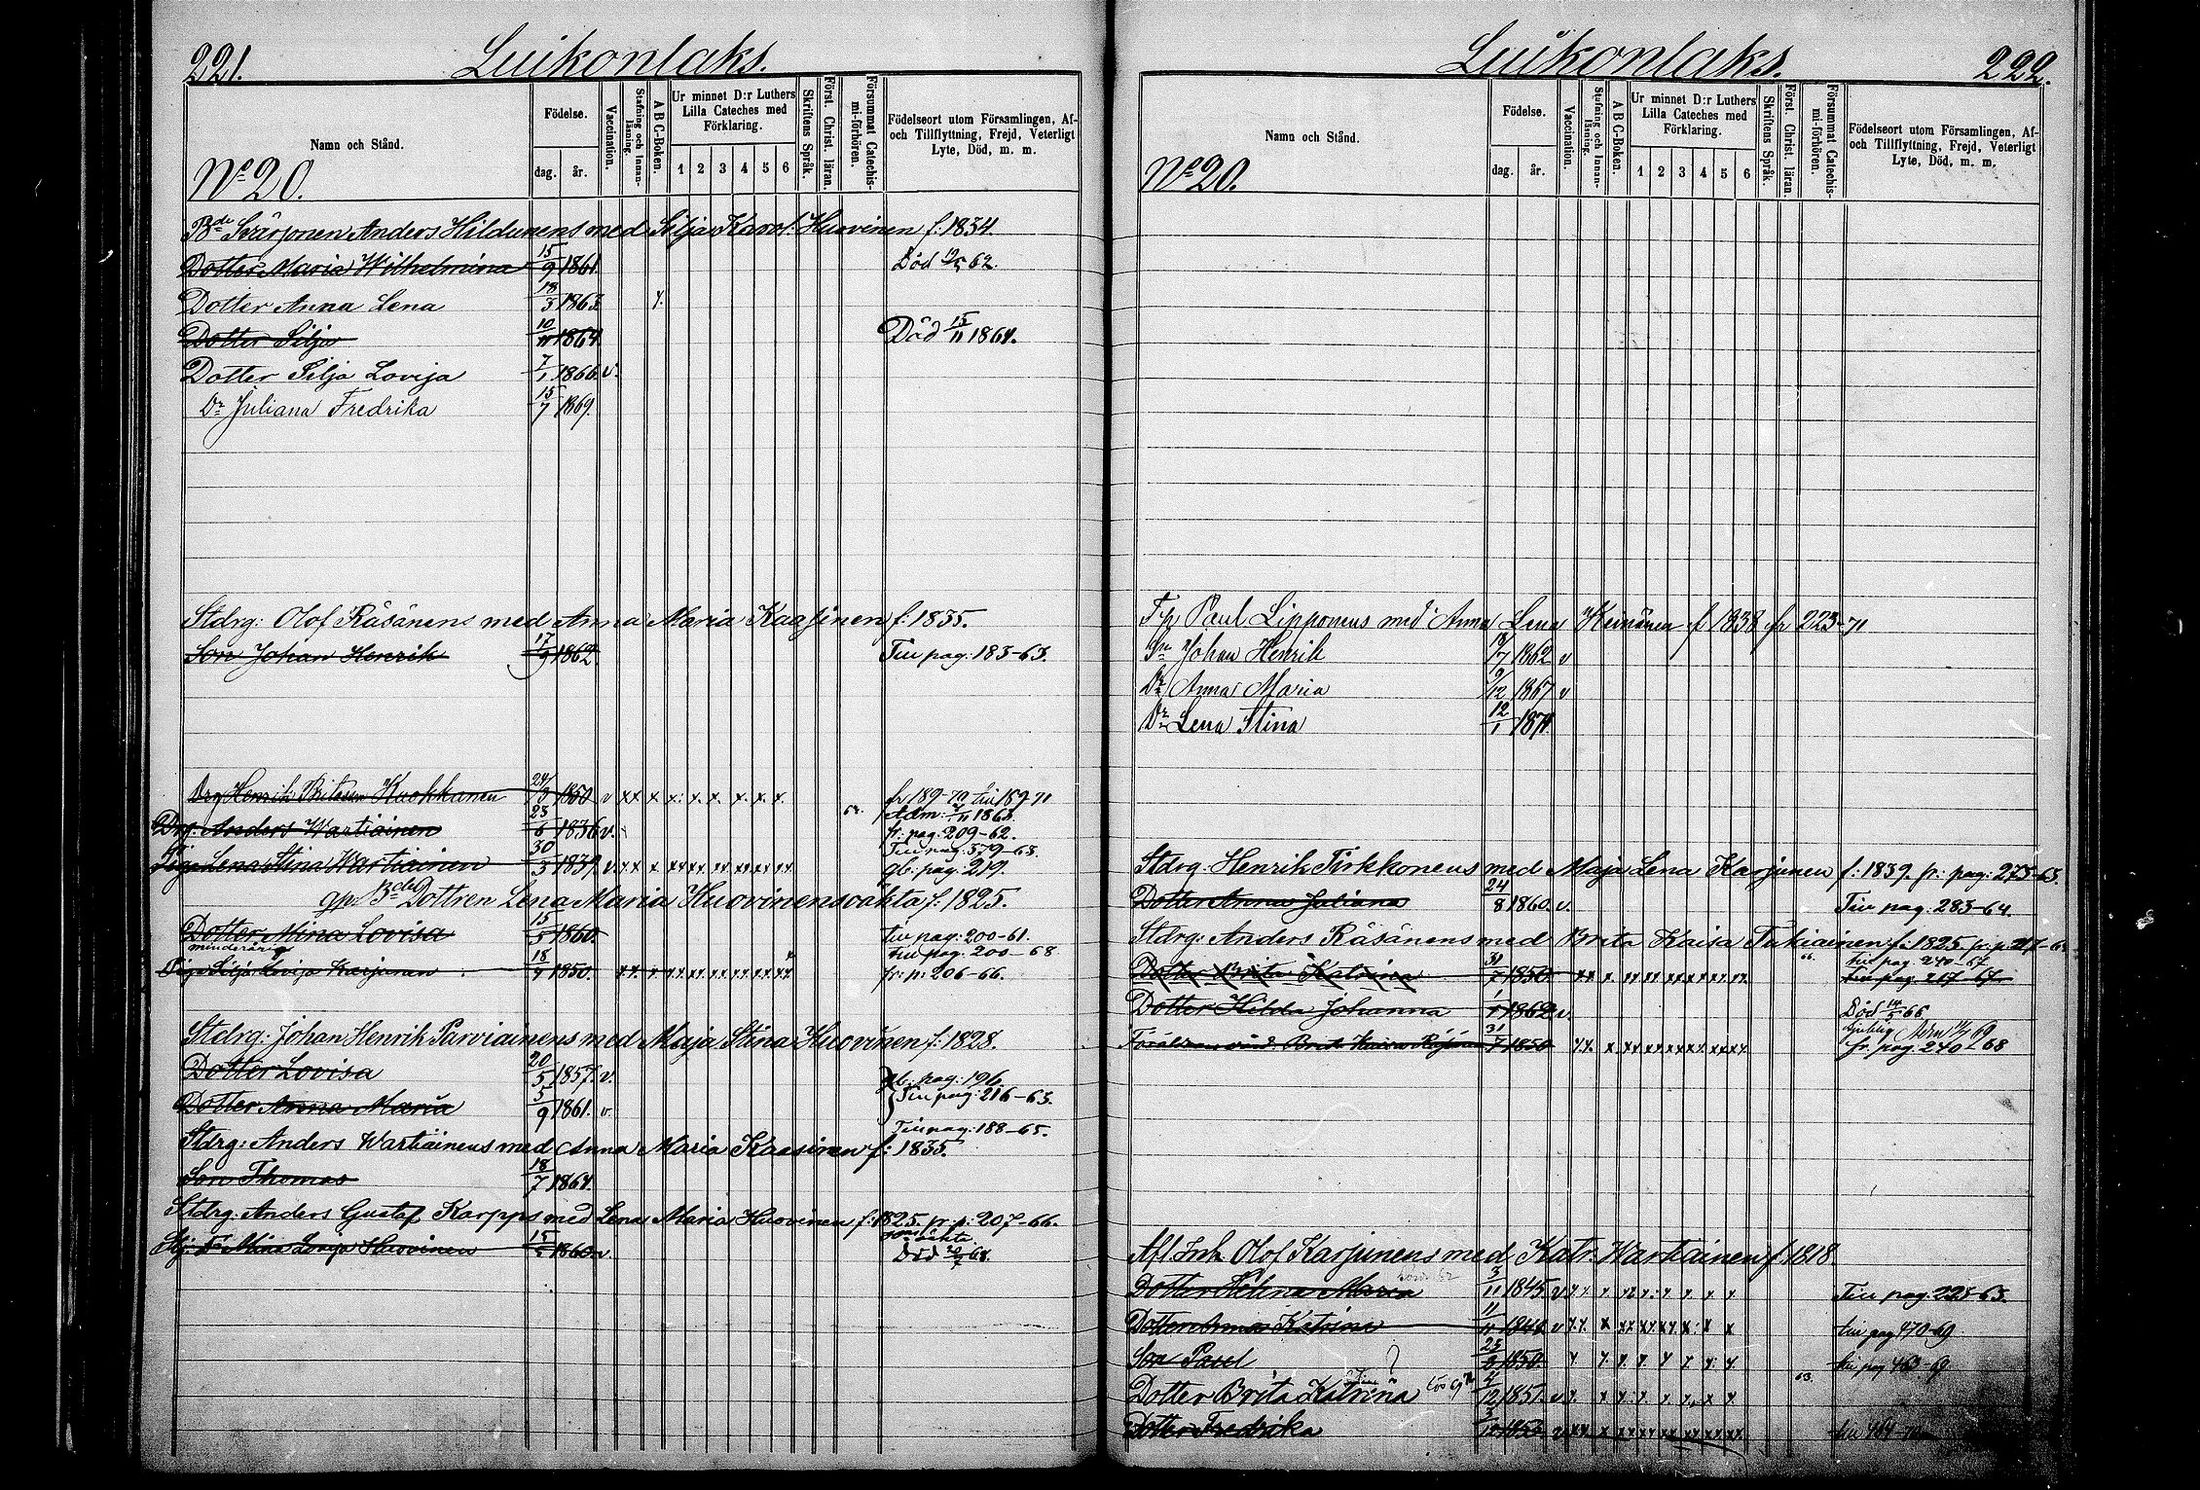 221.
Luikonlaks.
Namn och Stånd.
No 20.
Födelse.
dag.
år.
Vaccination.
Stafning och Innan-läsning.
A B C-Boken.
Ur minnet D:r Luthers
Lilla Cateches med
Förklaring.
1 2 3 4 5 6
Skriftens Språk.
Först. Christ. läran.
Försummat Catechis-mi-förhören.
Födelseort utom Församlingen, Af-
och Tillflyttning, Frejd, Veterligt
Lyte, Död, m. m.
Anders Hildunens med Silja Karol: Huovinen f. 1834.
Dotter Maria Wilhelmina 15/9 1861. Död 62.
Dotter Anna Lena 18/3 1863.
Dotter Silja 10/11 1864. Död 15/11 1864.
Dotter Silja Lovisa 7/1 1866. v.
Dr Juliana Fredrika 15/7 1869.
Stdrg: Olof Räsänens med Anna Maria Kaasinen f. 1835.
Son Johan Henrik 17/9 1862. Till pag: 183-63.
Drg Henrik Kuokkanen 1850 v xx x x. x. x. x. x. x. fr 189-70 till 189-71
Drg: Anders Wartiainen 23/6 1836 v. fr: pag: 209-62.
Lena Stina Wartiainen 30/3 1839 v. gl: pag: 219.
Dottren Lena Maria Huovinens oäkta f. 1825.
Dotter Mina Lovisa 15/5 1860. till pag: 200-61.
minderårig till pag. 200-68
Piga Silja Lovisa Karjunen 18/4 1850. fr: p: 206-66.
Stdrg: Johan Henrik Parviainens med Maja Stina Huovinen f: 1828.
Dotter Lovisa 20/5 1857. v. gl: pag: 196.
Till pag: 216-63.
Dotter Anna Maria 5/9 1861. v.
Till pag: 188-65.
Stdrg: Anders Wartiainens med Anna Maria Kaasinen f: 1835.
Son Thomas 18/7 1864.
Stdrg: Anders Gustaf Karpps med Lena Maria Huovinen f: 1825. fr: p: 207-66.
Mina Lovisa Huovinen 15/5 1860. v. Död 68.
Luikonlaks.
222.
Namn och Stånd.
No 20.
Födelse.
dag.
år.
Vaccination.
Stafning och Innan-läsning.
A B C-Boken.
Ur minnet D:r Luthers
Lilla Cateches med
Förklaring.
1 2 3 4 5 6
Skriftens Språk.
Först. Christ. läran.
Försummat Catechis-mi-förhören.
Födelseort utom Församlingen, Af-
och Tillflyttning, Frejd, Veterligt
Lyte, Död, m. m.
Paul Lipponens med Anna Lena Keinänen f 1838 fr 223-71
Sn Johan Henrik 1862 v
Dr Anna Maria 9/12 1867 v
Dr Lena Stina 12/1 1871.
Stdrg: Henrik Tirkkonens med Maja Lena Karjunen f: 1839. fr: pag: 273-63.
Dotter Anna Juliana 24/8 1860. v. Till pag. 283-64.
Stdrg: Anders Räsänens med Brita Kaisa Tukiainen f: 1825
Dotter Brita Katrina 31/7 1850. till pag. 240-67
till pag. 217-67
Dotter Hilda Johanna 1862 v. Död 14/5 66.
Brita Kaisa 31/7 1850 fr. pag. 240-68
Olof Karjunens med Katr. Wartiainen f. 1818.
Dotter Helena Maria 3/11 1845 v Till pag. 225-63.
Dotter Anna Katrina 11/11 till pag 470-69
Son Paul 1850. ? till pag 463-69.
Dotter Brita Katrina 4/12 1851. v
Dotter Fredrika 3/10 1853